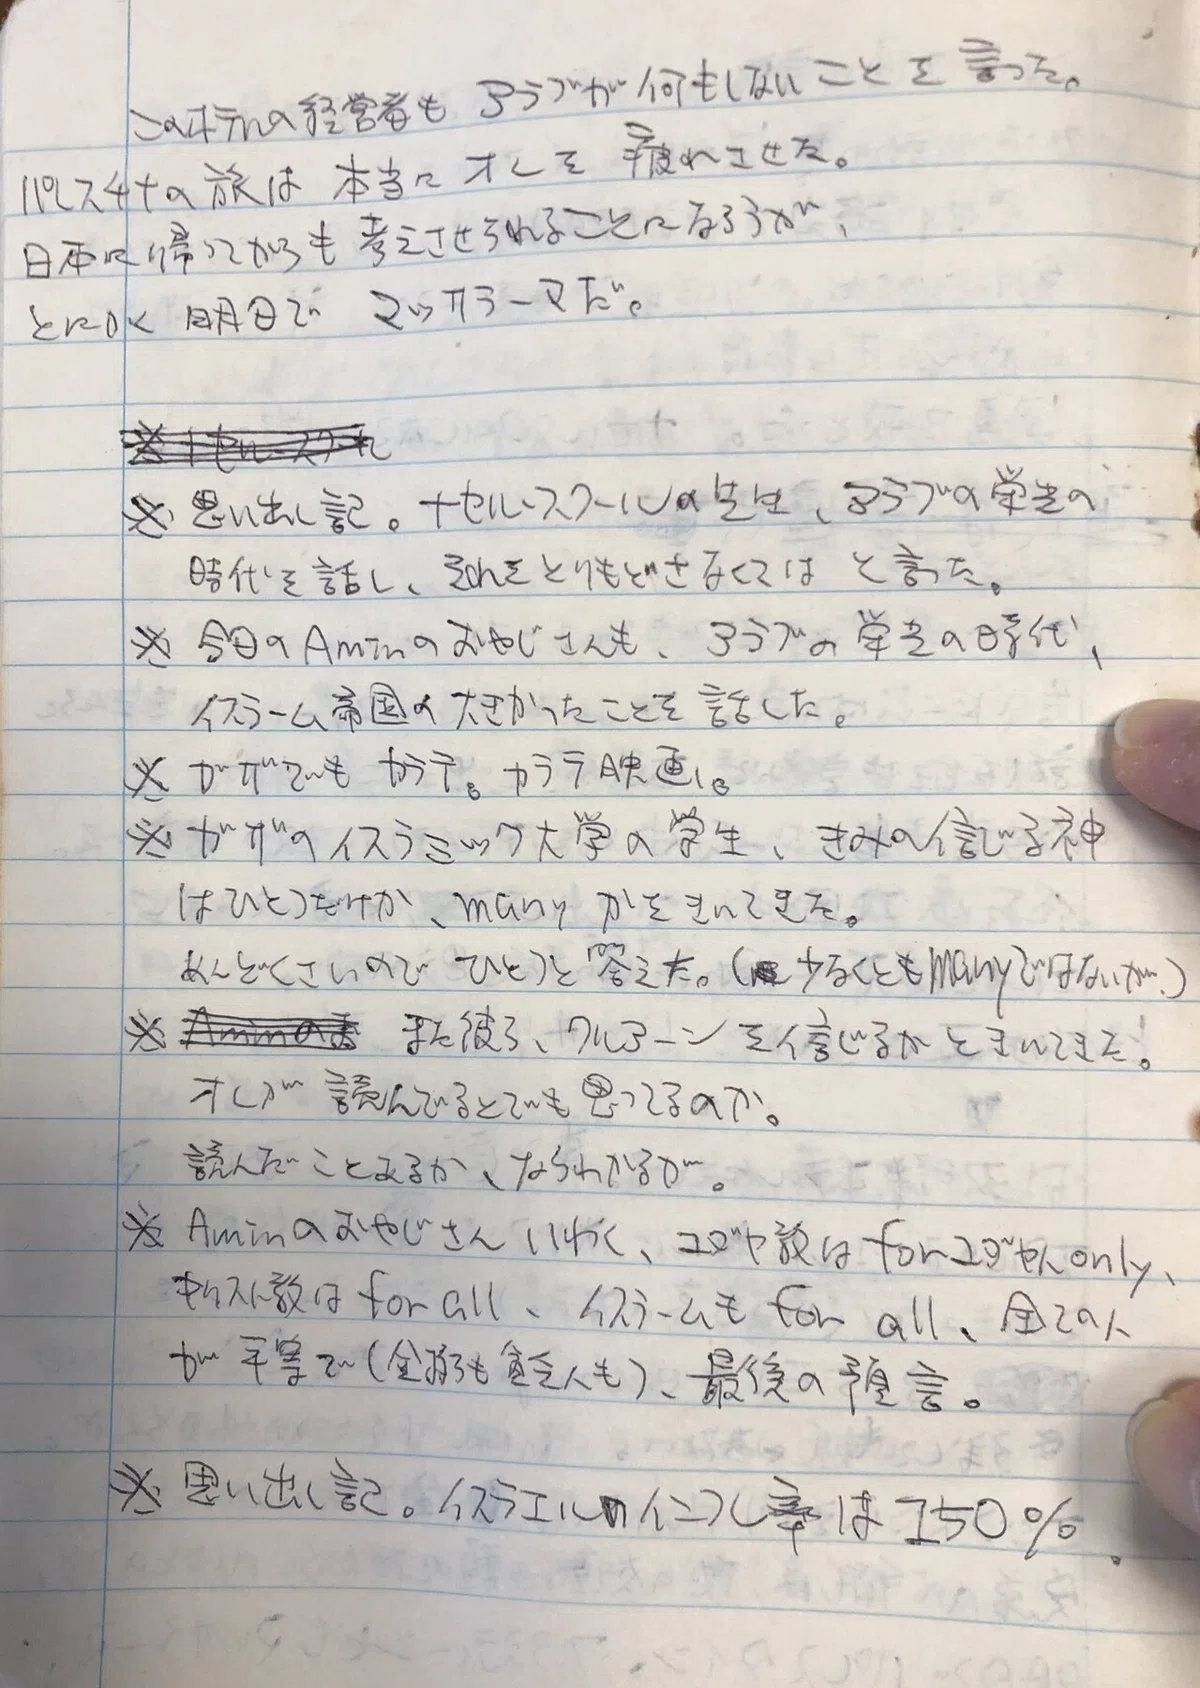 このホテルの経営者も アラブが何もしないことを言った。
パレスチナの旅は 本当に オレを 疲れさせた。
日本に帰ってからも 考えさせられることになろうが、
とにかく 明日で マッサラーマだ。
※ ナセル・スクール
※ 思い出し記。ナセル・スクールの先生、アラブの栄光の
時代を話し、それをとりもどさなくては と言った。
※ 今日のAminのおやじさんも、アラブの栄光の時代、
イスラーム帝国の大きかったことを話した。
※ ガザでも カラテ。カラテ映画。
※ ガザのイスラミック大学の学生、きみの信じる神
はひとつだけか、many かをきいてきた。
めんどくさいので ひとつと答えた。(少なくともmanyではないが。)
※ Aminのお また彼ら、クルアーンを信じるかときいてきた。
オレが 読んでるとでも思ってるのか。
読んだことあるか、ならわかるが。
※ Aminのおやじさんいわく、ユダヤ教は for ユダヤ人 only、
キリスト教は for all、イスラームも for all、全ての人
が平等で(金持も貧乏人も)、最後の預言。
※ 思い出し記。イスラエルのインフレ率は150%.